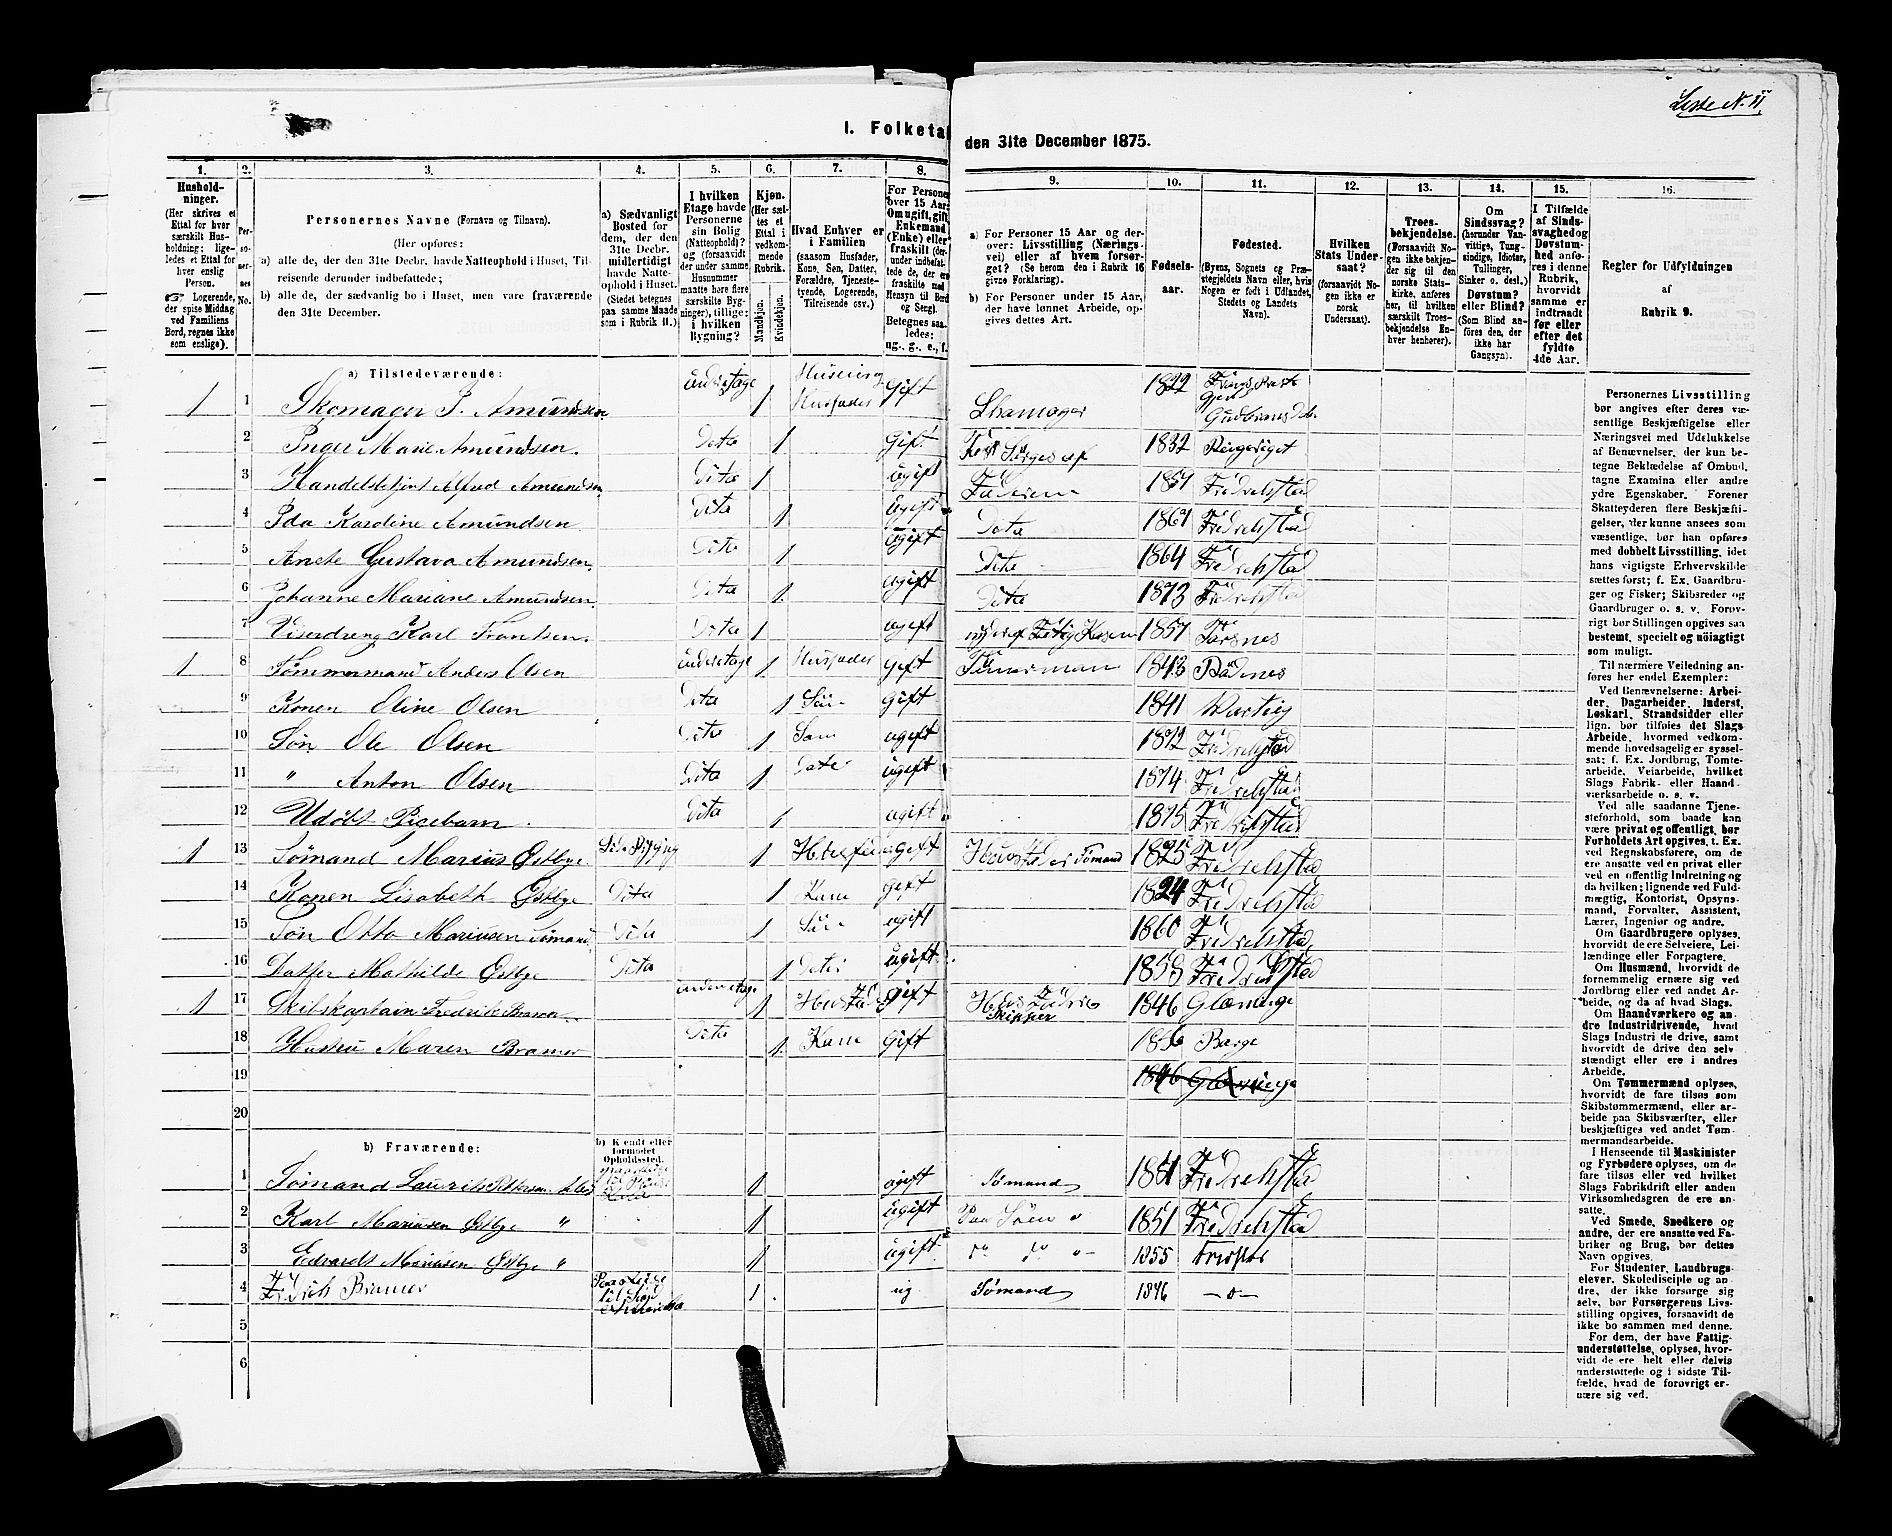 Liste N. 11
I. Folketal
den 31te December 1875.
1.
2.
3.
4.
5.
6.
7.
8.
9.
10.
11.
12.
13.
14.
15.
16.
Hushold-
ninger.
(Her skrives et
Ettal for hver
særskilt Hus-
holdning; lige-
ledes et Ettal for
hver enslig
Person.
☞ Logerende,
der spise Middag
ved Familiens
Bord, regnes ikke
som enslige).
Per-
so-
ner-
nes
No.
Personernes Navne (Fornavn og Tilnavn).
(Her opføres:
a) alle de, der den 31te Decbr. havde Natteophold i Huset, Til-
reisende derunder indbefattede;
b) alle de, der sædvanlig bo i Huset, men vare fraværende
den 31te December.
a) Sædvanligt
Bosted for
dem, der den
31te Decbr.
midlertidigt
havde Natte-
ophold i Huset.
(Stedet betegnes
paa samme Maade
som i Rubrik 11.)
I hvilken
Etage havde
Personerne
sin Bolig
(Natteophold)?
og (forsaavidt
der under samme
Husnummer
maatte høre flere
særskilte Byg-
ninger), tillige:
i hvilken
Bygning?
Kjøn.
(Her sæt-
tes et
Ettal i
vedkom-
mende
Rubrik.
Mandkjøn.
Kvindekjøn.
Hvad Enhver er
i Familien
(saasom Husfader,
Kone, Søn, Datter,
Forældre, Tjeneste-
tyende, Logerende,
Tilreisende osv.)
For Persone
over 15 Aar
Om ugift, gift
Enkemand
(Enke) eller
fraskilt (der-
under indbefat-
tede de, der ere
fraskilte med
Hensyn til Bord
og Seng).
Betegnes saa-
ledes:
ug., g., e., f.
a) For Personer 15 Aar og der-
over: Livsstilling (Nærings-
vei) eller af hvem forsør-
get? (Se herom den i Rubrik 16
givne Forklaring).
b) For Personer under 15 Aar,
der have lønnet Arbeide, op-
gives dettes Art.
Fødsels-
aar.
Fødested.
(Byens, Sognets og Præ-
stegjeldets Navn eller, hvis
Nogen er født i Udlandet,
Stedets og Landets
Navn).
Hvilken
Stats Under-
saat?
(forsaavidt No-
gen ikke er
norsk
Undersaat).
Troes-
bekjendelse.
(Forsaavidt No-
gen ikke bekjen-
der sig til den
norske Stats-
kirke, anføres
her, til hvilken
særskilt Troes-
bekjendelse En-
hver henhører).
Om
Sindssvag?
(herunder Van-
vittige, Tung-
sindige, Idioter,
Tullinger,
Sinker o. desl.)
Døvstum?
eller Blind?
(Som Blind an-
føres den, der
ikke har
Gangsyn).
I Tilfælde
af Sinds-
svaghed og
Døvstum-
hed anfø-
res i denne
Rubrik,
hvorvidt
samme er
indtraadt
før eller
efter det
fyldte
4de Aar.
Regler for Udfyldningen
af
Rubrik 9.
a) Tilstedeværende:
1 1 Skomager J. Amundsen underetage 1 Huseier og Husfader gift 1822
Gudbrandsda
2 Inger Marie Amundsen. Dito 1 gift 1832 Ringeriget
3 Handelsbetjent Alfred Amundsen Dito 1 ugift Fredrekstad
4 Ida Karoline Amundsen Dito 1 ugift Dito 1861 Fredrekstad
5 Anete Gustava Amundsen Dito 1 ugift Dito 1864 Fredrekstad
6 Johanne Mariane Amundsen. Dito 1 ugift Dito 1873 Fredrekstad
7 Karl Frantsen. Dito 1 ugift
1 8 Tømmermand Anders Olsen underetage 1 Husfader gift 1843
9 Konen Oline Olsen Dito 1 gift 1841
10 Søn Ole Olsen Dito 1 ugift 1872 Fredrekstad
11 " Anton Olsen Dito 1 ugift 1874 Fredrekstad
12 Udøbt Pigebarn. Dito 1 ugift 1875 Fredrekstad
1 13 Sømand Marius Østbye 1 gift Sømand 1825 Fredrekstad
14 Konen Lisabeth Østbye Dito 1 Kone gift 1824 Fredrekstad
15 Søn Otto Mariusen Sømand Dito 1 ugift 1860 Fredrekstad
16 Datter Mathilde Østbye Dito 1 ugift Fredrekstad
1 17 Skibskaptain Fredrik Bramer underetage 1 gift Skipper 1846 Gleminge
18 Hustru Maren Bramer Dito 1 Kone gift Borge
19 1846 Glemminge
20
b) Fraværende:
b) Kjendt eller
formodet
Opholdssted.
1 Sømand Laurits 1 ugift Sømand Fredrekstad
2 Karl Mariusen Østbye " 1 ugift 1851 Fredrekstad
3 Edvardt Mariusen Østbye " 1 ugift 1855
4 Fredrich Bramer 1 ug Sømand 1846 —o—
5
6
Personernes Livsstilling
bør angives efter deres væ-
sentlige Beskjæftigelse eller
Næringsvei med Udelukkelse
af Benævnelser, der kun be-
tegne Beklædelse af Ombud,
tagne Examina eller andre
ydre Egenskaber. Forener
Skatteyderen flere Beskjæfti-
gelser, der kunne ansees som
væsentlige, bør han opføres
med dobbelt Livsstilling, idet
hans vigtigste Erhvervskilde
sættes først; f. Ex. Gaardbru-
ger og Fisker; Skibsreder og
Gaardbruger o. s. v. Forøv-
rigt bør Stillingen opgives saa
bestemt, specielt og nøiagtigt
som muligt.
Til nærmere Veiledning an-
føres her endel Exempler:
Ved Benævnelserne: Arbei-
der, Dagarbeider, Inderst,
Løskarl, Strandsidder eller
lign. bør tilføies det Slags
Arbeide, hvormed vedkom-
mende hovedsagelig er syssel-
sat; f. Ex. Jordbrug, Tomte-
arbeide, Veiarbeide, hvilket
Slags Fabrik- eller Haand-
værksarbeide o. s. v.
Ved alle saadanne Tjene-
steforhold, som baade kan
være privat og offentligt, bør
Forholdets Art opgives, t. Ex.
ved Regnskabsførere, om de
ere ansatte ved en privat eller
ved en offentlig Indretning og
da hvilken; lignende ved Fuld-
mægtig, Kontorist, Opsyns-
mand, Forvalter, Assistent,
Lærer, Ingeniør og andre.
Om Gaardbrugere oplyses,
hvorvidt de ere Selveiere, Lei-
lændinge eller Forpagtere.
Om Husmænd, hvorvidt de
fornemmelig ernære sig ved
Jordbrug eller ved andet Ar-
beide, og da af hvad Slags.
Om Haandværkere og an-
dre Industridrivende, hvad
Slags Industri de drive, samt
hvorvidt de drive den selv-
stændigt eller ere i andres
Arbeide.
Om Tømmermænd oplyses,
hvorvidt de fare tilsøs som
Skibstømmermænd, eller ar-
beide paa Skibsværfter, eller
beskjæftiges ved andet Tøm-
mermandsarbeide.
I Henseende til Maskinister
og Fyrbødere oplyses, om de
fare tilsøs eller ved hvilket
Slags Fabrikdrift eller anden
Virksomhedsgren de ere an-
satte.
Ved Smede, Snedkere og
andre, der ere ansatte ved Fa-
briker og Brug, bør dettes
Navn opgives.
For Studenter, Landbrugs-
elever, Skoledisciple og an-
dre, der ikke forsørge sig
selv, bør Forsørgerens Livs-
stilling opgives, forsaavidt de
ikke bo sammen med denne.
For dem, der have Fattig-
understøttelse, oplyses, hvor-
vidt de ere helt eller delvis
understøttede og i sidste Til-
fælde, hvad de forøvrigt er-
nære sig ved.